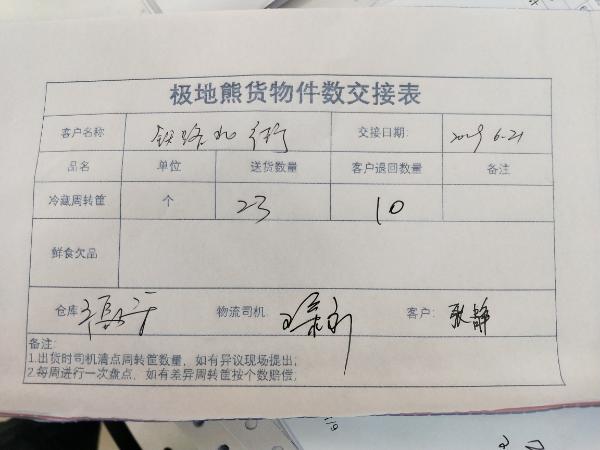 极地熊货物件数交接表
客户名称 铁路北街 交接日期: 2019 6.21
品名 单位 送货数量 客户退回数量 备注
冷藏周转筐 个 23 10
鲜食欠品
仓库: 物流司机: 客户: 张静
备注:
1.出货时司机清点周转筐数量，如有异议现场提出;
2.每周进行一次盘点，如有差异周转筐按个数赔偿;